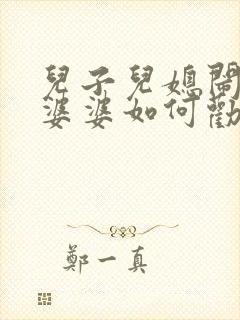 兒子兒媳鬧
婆婆如何勸
鄭一真